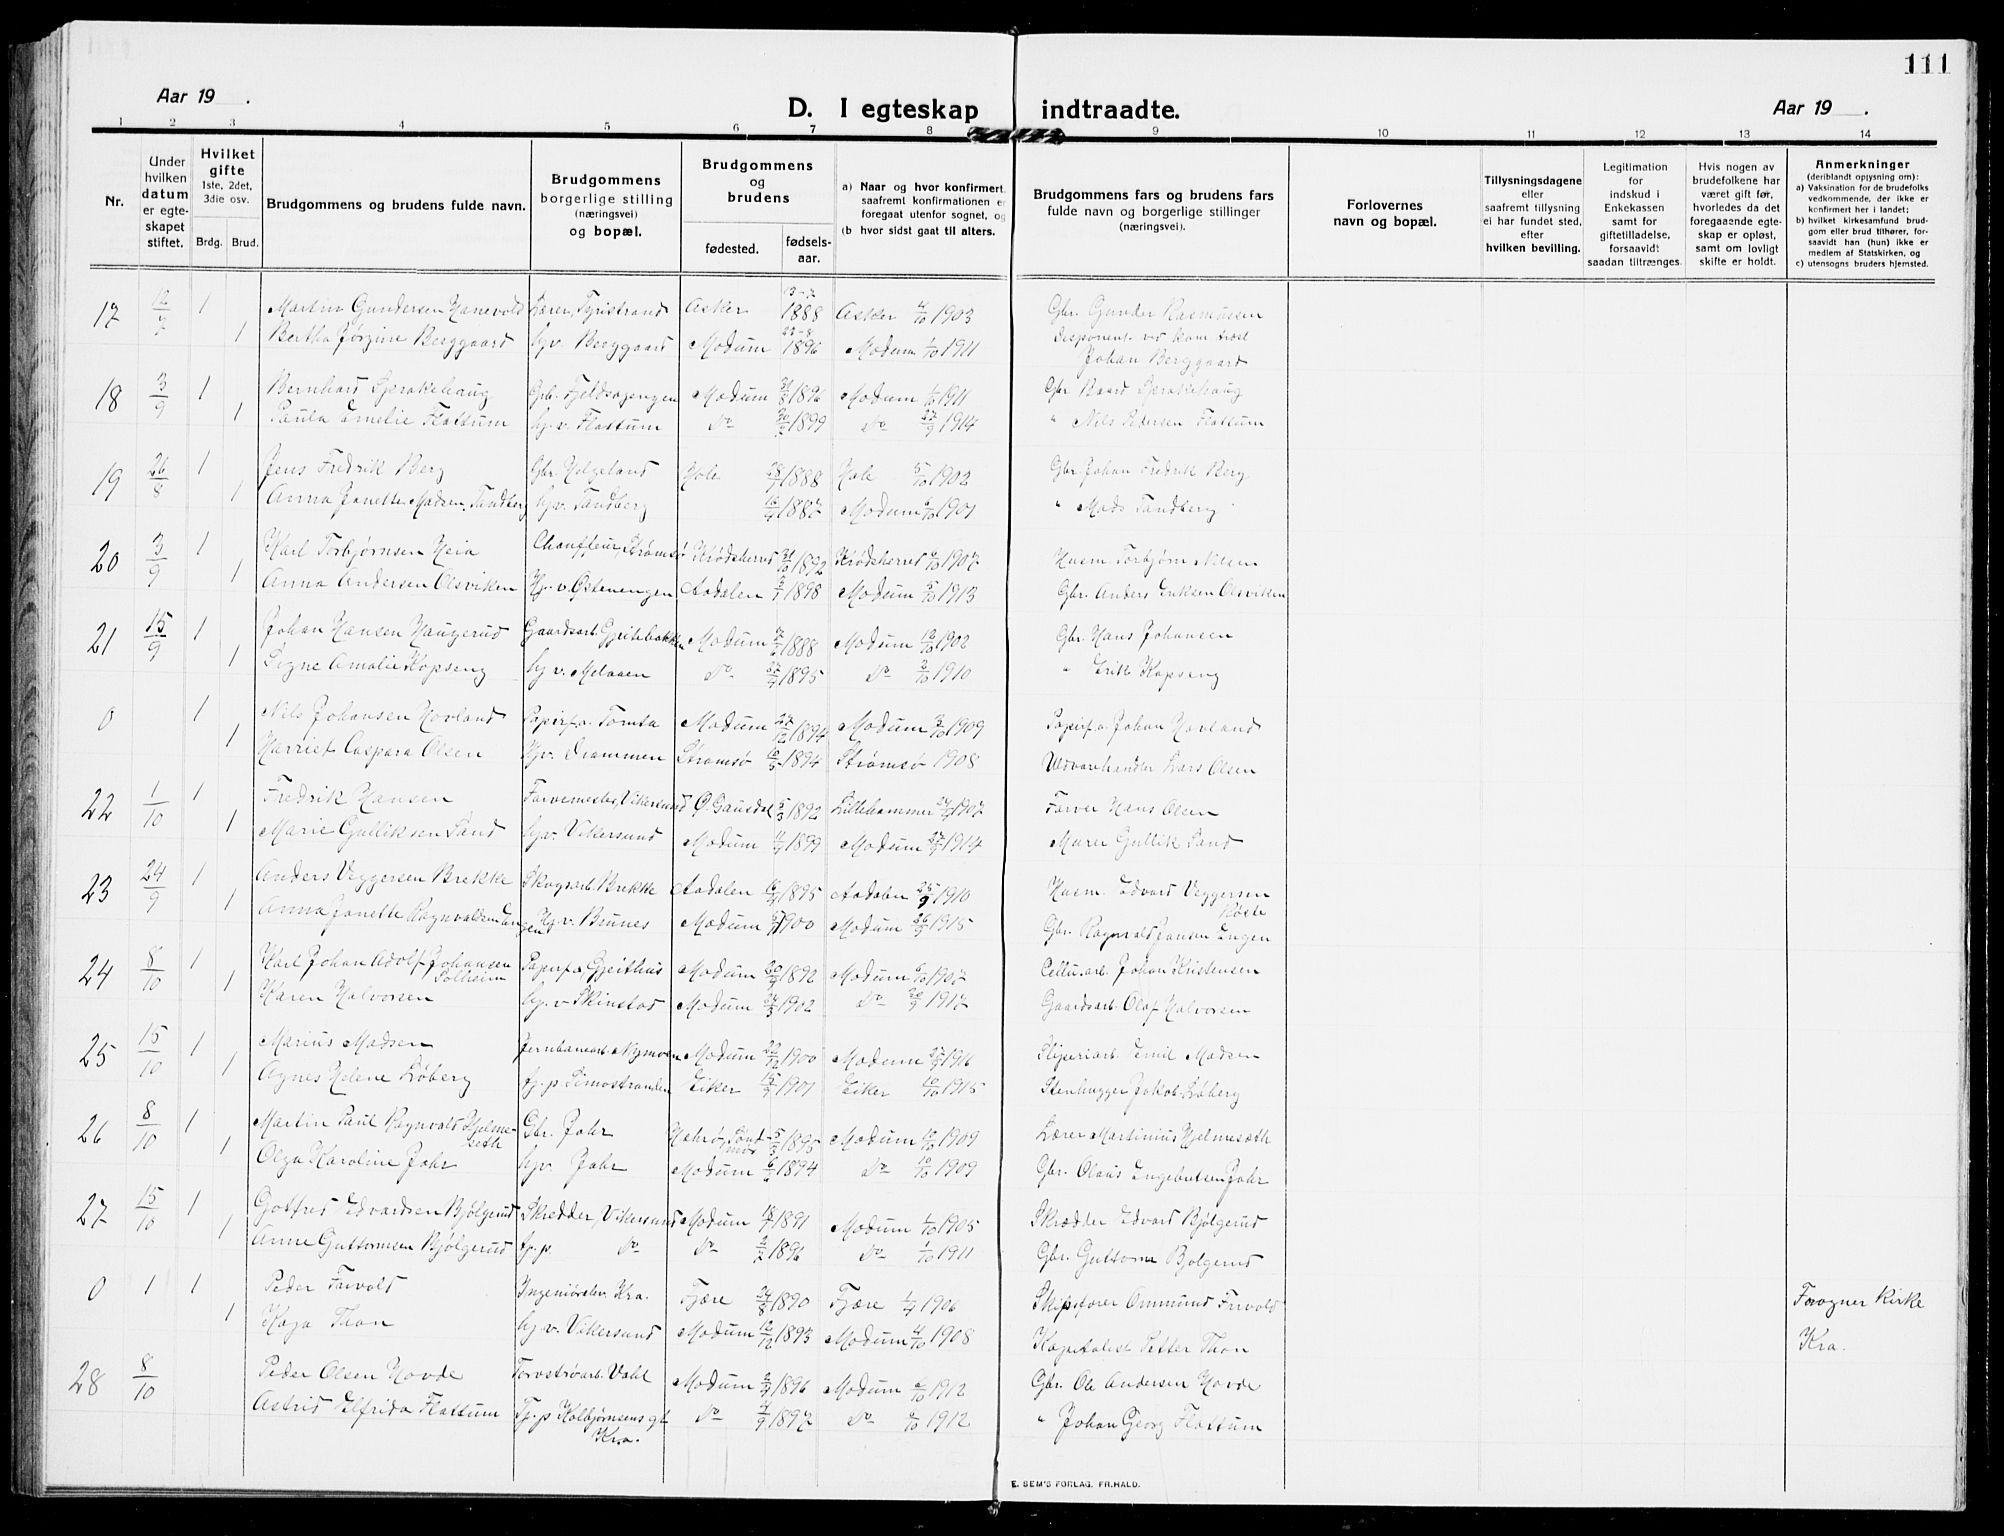 111
Aar 19 .
D. I egteskap indtraadte.
Aar 19 .
1 2 3 4 5 6 7 8 9 10 11 12 13 14
Nr.
Under hvilken datum er egteskapet stiftet.
Hvilket gifte
1ste, 2det, 3die osv.
Brdg. Brud.
Brudgommens og brudens fulde navn.
Brudgommens borgerlige stilling (næringsvei) og bopæl.
Brudgommens og brudens
fødested. fødselsaar.
a) Naar og hvor konfirmert, saafremt konfirmationen er foregaat utenfor sognet, og
(b hvor sidst gaat til alters.
Brudgommens fars og brudens fars fulde navn og borgerlige stillinger (næringsvei).
Forlovernes navn og bopæl.
Tillysningsdagene eller saafremt tillysning ei har fundet sted, efter hvilken bevilling.
Legitimation for indskud i Enkekassen samt for giftetilladelse, forsaavidt saadan tiltrænges.
Hvis nogen av brudefolkene har været gift før, hvorledes da det foregaaende egteskap er opløst, samt om lovligt skifte er holdt.
Anmerkninger
(deriblandt oplysning om):
a) Vaksination for de brudefolks vedkommende, der ikke er konfirmert her i landet;
b) hvilket kirkesamfund brudgom eller brud tilhører, forsaavidt han (hun) ikke er medlem af Statskirken, og
c) utensogns bruders hjemsted.
17 12/7 1 Martin Gundersen Hanevold Lærer, Tyristrand Asker 13-7 1888 Asker 4/10 1903 Gbr. Gunder Rasmussen
1 Bertha Jørgine Berggaard hj.v. Berggaard Modum 22-8 1896 Modum 1/10 1911 Disponent ved
Johan Berggaard
18 3/9 1 Bernhard Sprakehaug Gbr. Fjeldsagengen Modum 1896 Modum 1/10 1911 Gbr. Baard Sprakehaug
1 Paula Emelie Flattum hj.v. Flattum Do 1899 Do 27/9 1914 " Nils Petersen Flattum
19 26/8 1 Jens Fredrik Berg Gbr. Helgeland Hole 1888 Hole 5/10 1902 Gbr. Johan Fredrik Berg
1 Anna Janette Madsen Tandberg hj.v. Tandberg 1887 Modum 6/10 1901 " Mads Tandberg
20 3/9 1 Karl Torbjørnsen Heia Chauffeur, Strømsø Krødsherred 31/10 1892 Krødsherred 6/10 1907 Husm. Torbjørn Nilsen
1 Anna Andersen Olsviken Hj.v. Østenengen Aadalen 1898 Modum 5/10 1913 Gbr. Anders Eriksen Olsviken
21 15/9 1 Johan Hansen Haugerud Gaardsarb. Gjeitebakken Modum 1888 Modum 12/10 1902 Gbr. Hans Johansen
1 Signe Amalie Kopseng hj.v. Melaaen Do 1895 Do 2/10 1910 " Erik Kopseng
0 1 Nils Johansen Hovland Papirf.a. Tomta Modum 27/12 1894 Modum 3/10 1909 Papirf.a. Johan Hovland
1 Harriet Caspara Olsen Hj.v. Drammen Strømsø 1894 Strømsø 1908 Uldvarehandler Lars Olsen
22 1/10 1 Fredrik Hansen Farvemester, Vikersund Ø. Gausdal 5/3 1892 Lillehammer 1907 Farver Hans Olsen
1 Marie Gulliksen Sand hj.v. Vikersund Modum 1899 Modum 27/9 1914 Murer Gullik Sand
23 24/9 1 Anders Veggersen Brekke Skogsarb. Brekke Aadalen 1895 Aadalen 25/9 1910 Husm. Edvard Veggersen
Røste
1 Anna Janette Ragnvaldsen Engen Hj.v. Brunes Modum 1900 Modum 26/9 1915 Gbr. Ragnvald Jansen Engen
24 8/10 1 Karl Johan Adolf Johansen Solheim Papirf.a. Gjeithus Modum 1892 Modum 6/10 1907 Cellu.arb. Johan Kristensen
1 Karen Halvorsen hj.v. Skinstad Modum 24/3 1902 Do 30/9 1917 Gaardsarb. Olaf Halvorsen
25 15/10 1 Marius Madsen Jernbanearb. Nymoen Modum 22/12 1900 Modum 1916 Sliperiarb. Emil Madsen
1 Agnes Helene Løberg tj.p. Simostranden Eiker 1901 Eiker 10/10 1915 Stenhugger Jakob Løberg
26 8/10 1 Martin Paul Ragnvald Hjelmeseth Gbr. Johr 5/3 1895 Modum 10/10 1909 Lærer Martinius Hjelmeseth
1 Olga Karoline Johr hj.v. Johr Modum 6/6 1894 Do 10/10 1909 Gbr. Olaus Engebretsen Johr
27 15/10 1 Gotfred Edvardsen Bjølgerud Skredder, Vikersund Modum 1891 Modum 1/10 1905 Skrædder Edvard Bjølgerud
1 Anne Guttormsen Bjølgerud tj.p. Do Do 1896 Do 1/10 1911 Gbr. Guttorm Bjølgerud
0 1 1 Peder Farvold Ingeniørelev Kra. Fjære 24/8 1890 Fjære 1906 Skipsfører Ommund Farvold Frogner Kirke
1 Kaja Thon hj.v. Vikersund Modum 12/12 1893 Modum 4/10 1908 Kapitalist Petter Thon Kra.
28 8/10 Peder Olsen Hovde Torvstrøarb. Vahl Modum 1896 Modum 6/10 1912 Gbr. Ole Andersen Hovde
Astrid Elfrida Flattum Tj.p. Kolbjørnsens gt. Kra. Do 4/9 1897 Do 6/10 1912 " Johan Georg Flattum
E. SEM'S FORLAG, FR.HALD.